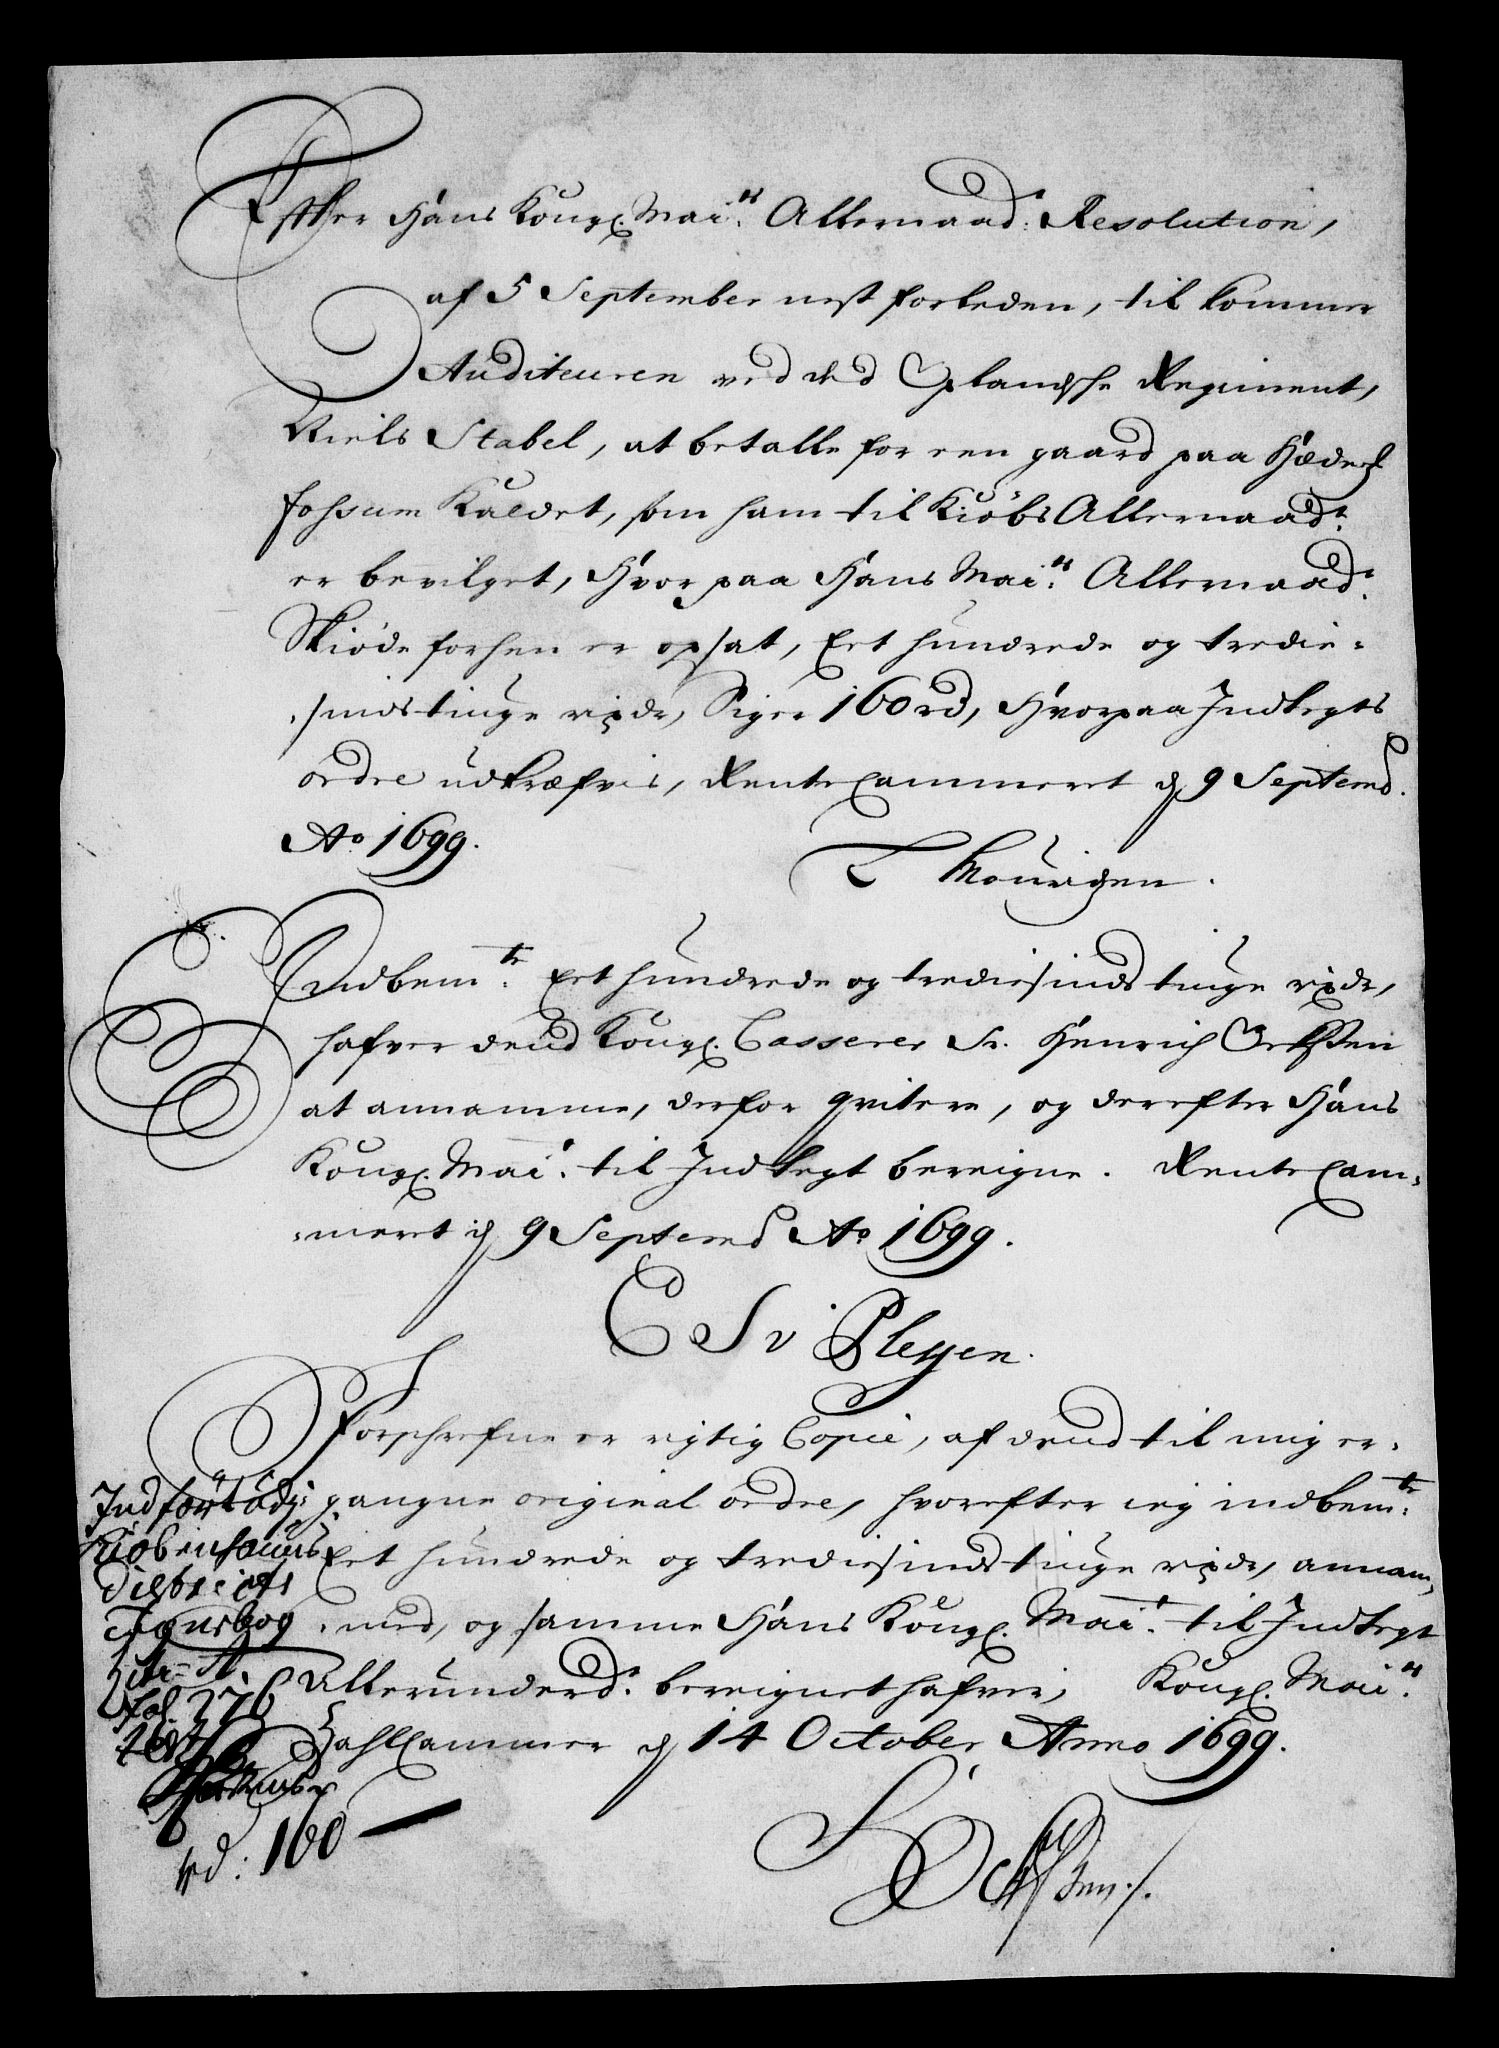 Efter Hans Kongl. Mai.ts Allernaad: Resolution,
af 5 September nest forleden, til kommer
Auditeuren ved det Oplandsche Regiment,
Niels Stabel, at betalle for een gaard paa Hedem:
Fossum kaldet, som ham til Kiöbs Allernaad.t
er bevilget, Hvor paa Hans Mai.ts Allernaad.t
Skiöde forhen er opsat, Eet hundrede og tredie-
sindstiuge rixdr, Siger 160 rd, Hvorpaa Indtegts
ordre udkræfvis, RenteCammeret d 9 Septemb.
Ao 1699.
T
Indbem.te Eet hundrede og trediesindstiuge rixdr,
hafver dend Kongl. Casserer Sr. Henrich
at annamme, derfor qvitere, og derefter Hans
Kongl. Mai.t til Indtegt bereigne. RenteCam-
meret d 9 Septemb Ao 1699.
C S v Plessen.
Forschrefne er rigtig Copie, af dend til mig er-
gangne original ordre, hvorefter ieg indbem.te
Eet hundrede og trediesindstiuge rixdr, annam-
med, og samme Hans Kongl. Mai.t til Indtegt
Allerunderd.t bereignet hafver, Kongl. Mai.ts
ZahlCammer d 14 October Anno 1699.
H
Indfört udj
Kiöbenhauns
Justebog
Litr: A.
fol. 376
rd: 160